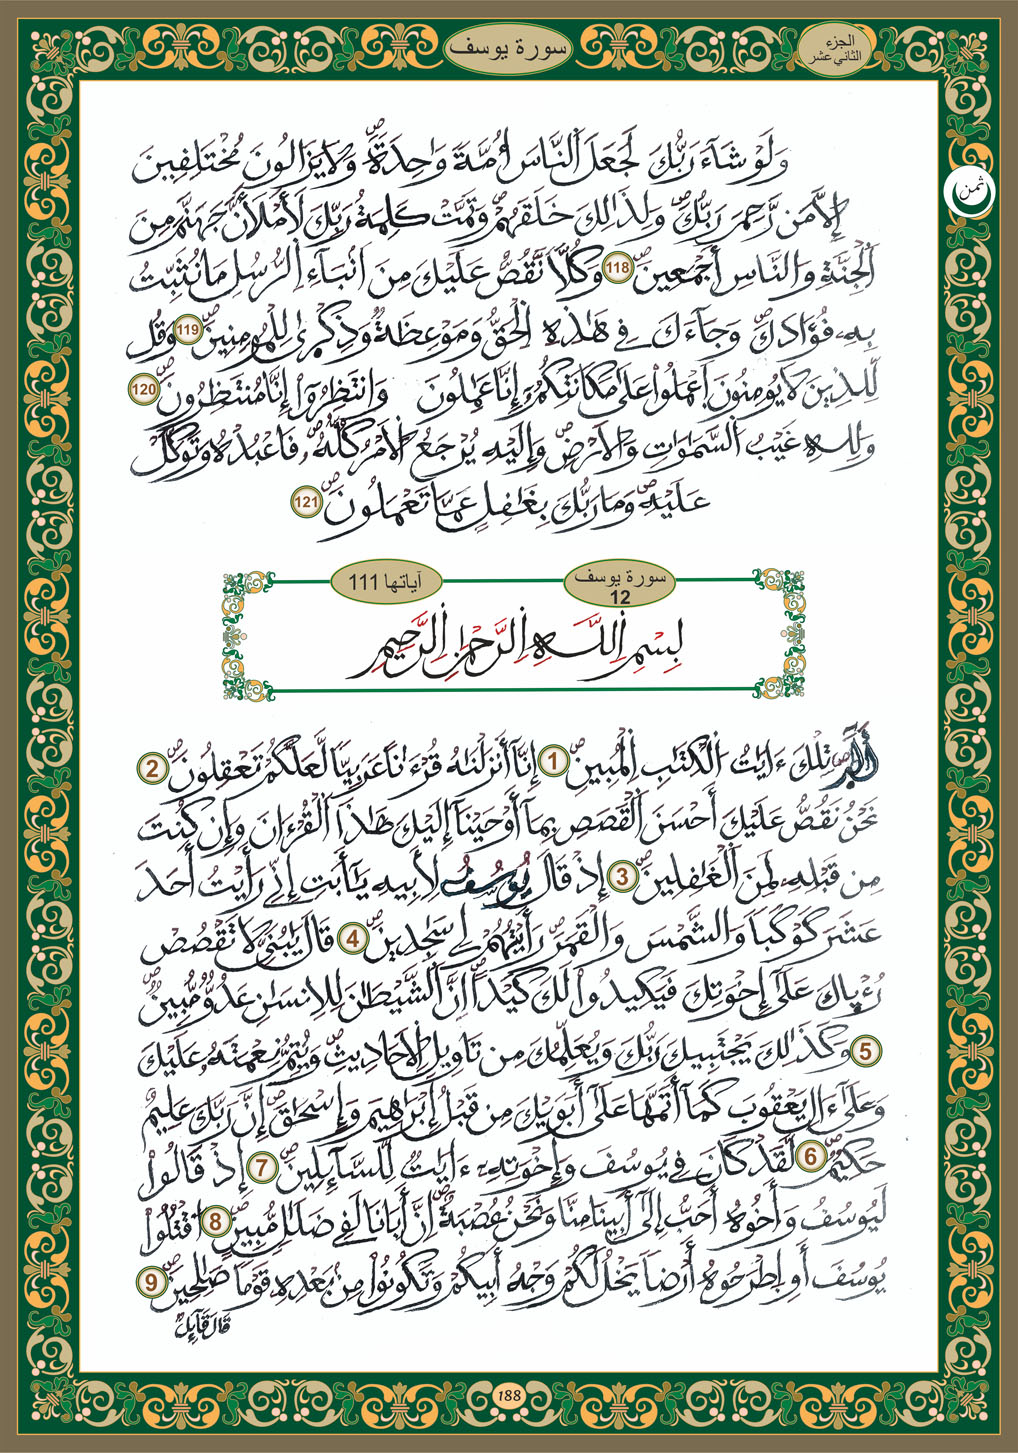 سورة يوسف
الجزء
الثاني عشر
ثمن
وَلَوْ شَآءَ رَبُّكَ لَجَعَلَ اَ۬لنَّاسَ أُمَّةٗ وَٰحِدَةٗۖ وَلَا يَزَالُونَ مُخْتَلِفِينَ
إِلَّا مَن رَّحِمَ رَبُّكَۖ وَلِذَٰلِكَ خَلَقَهُمْۖ وَتَمَّتْ كَلِمَةُ رَبِّكَ لَأَمْلَأَنَّ جَهَنَّمَ مِنَ
اَ۬لْجِنَّةِ وَالنَّاسِ أَجْمَعِينَۖ 118 وَكُلّٗا نَّقُصُّ عَلَيْكَ مِنَ اَنۢبَآءِ اِ۬لرُّسُلِ مَا نُثَبِّتُ
بِهِۦ فُؤَادَكَۖ وَجَآءَكَ فِي هَٰذِهِ اِ۬لْحَقُّ وَمَوْعِظَةٞ وَذِكْر۪ىٰ لِلْمُومِنِينَۖ 119 وَقُل
لِّلذِينَ لَا يُومِنُونَ اَ۪عْمَلُواْ عَلَىٰ مَكَانَتِكُمُۥٓ إِنَّا عَٰمِلُونَ وَانتَظِرُوٓاْ إِنَّا مُنتَظِرُونَۖ 120
وَلِلهِ غَيْبُ اُ۬لسَّمَٰوَٰتِ وَالَارْضِۖ وَإِلَيْهِ يُرْجَعُ اُ۬لَامْرُ كُلُّهُۥۖ فَاعْبُدْهُ وَتَوَكَّلْ
عَلَيْهِۖ وَمَا رَبُّكَ بِغَٰفِلٍ عَمَّا تَعْمَلُونَۖ 121
سورة يوسف
12
آياتها 111
بِسْمِ اِ۬للَّهِ اِ۬لرَّحْمَٰنِ اِ۬لرَّحِيمِ
أَلَٓر۪ۖ تِلْكَ ءَايَٰتُ اُ۬لْكِتَٰبِ اِ۬لْمُبِينِۖ 1 إِنَّآ أَنزَلْنَٰهُ قُرْءَٰناً عَرَبِيّاٗ لَّعَلَّكُمْ تَعْقِلُونَۖ 2
نَحْنُ نَقُصُّ عَلَيْكَ أَحْسَنَ اَ۬لْقَصَصِ بِمَآ أَوْحَيْنَآ إِلَيْكَ هَٰذَا اَ۬لْقُرْءَانَ وَإِن كُنتَ
مِن قَبْلِهِۦ لَمِنَ اَ۬لْغَٰفِلِينَۖ 3 إِذْ قَالَ يُوسُفُ لِأَبِيهِ يَٰٓأَبَتِ إِنِّي رَأَيْتُ أَحَدَ
عَشَرَ كَوْكَباٗ وَالشَّمْسَ وَالْقَمَرَ رَأَيْتُهُمْ لِي سَٰجِدِينَۖ 4 قَالَ يَٰبُنَيِّ لَا تَقْصُصْ
رُءْي۪اكَ عَلَىٰٓ إِخْوَتِكَ فَيَكِيدُواْ لَكَ كَيْداًۖ اِنَّ اَ۬لشَّيْطَٰنَ لِلِانسَٰنِ عَدُوّٞ مُّبِينٞۖ
5 وَكَذَٰلِكَ يَجْتَبِيكَ رَبُّكَ وَيُعَلِّمُكَ مِن تَاوِيلِ اِ۬لَاحَادِيثِۖ وَيُتِمُّ نِعْمَتَهُۥ عَلَيْكَ
وَعَلَىٰٓ ءَالِ يَعْقُوبَ كَمَآ أَتَمَّهَا عَلَىٰٓ أَبَوَيْكَ مِن قَبْلُ إِبْرَٰهِيمَ وَإِسْحَٰقَۖ إِنَّ رَبَّكَ عَلِيمٌ
حَكِيمٞۖ 6 لَّقَدْ كَانَ فِي يُوسُفَ وَإِخْوَتِهِۦٓ ءَايَٰتٞ لِّلسَّآئِلِينَۖ 7 إِذْ قَالُواْ
لَيُوسُفُ وَأَخُوهُ أَحَبُّ إِلَىٰٓ أَبِينَا مِنَّا وَنَحْنُ عُصْبَةٌۖ اِنَّ أَبَانَا لَفِي ضَلَٰلٖ مُّبِينٍۖ 8 اُ۟قْتُلُواْ
يُوسُفَ أَوِ اِ۪طْرَحُوهُ أَرْضاٗ يَخْلُ لَكُمْ وَجْهُ أَبِيكُمْ وَتَكُونُواْ مِنۢ بَعْدِهِۦ قَوْماٗ صَٰلِحِينَۖ 9
قَالَ قَآئِلٞ
188